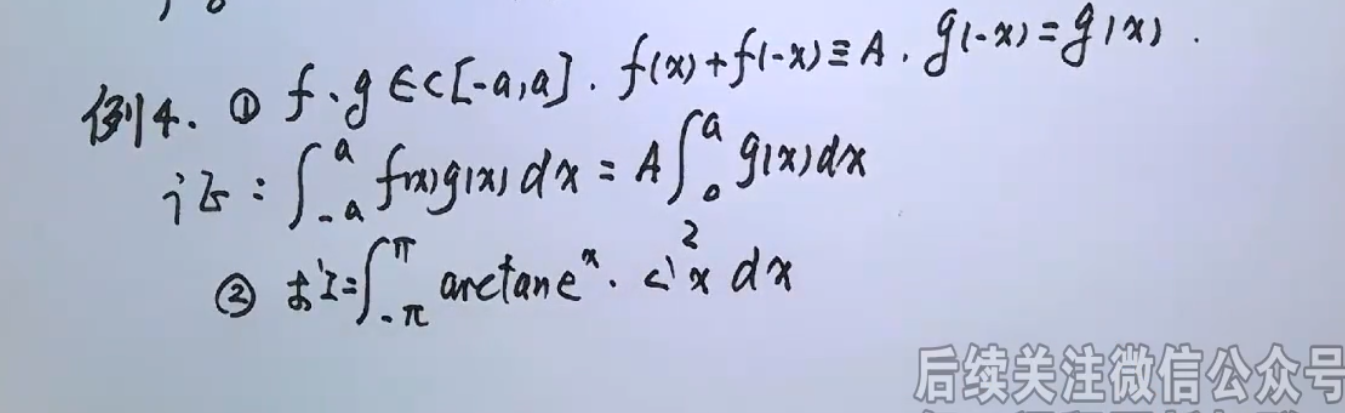 例4. ① f、g∈C[-a,a]. f(x)+f(-x)≡A. g(-x)=g(x).
证: ∫_{-a}^{a} f(x)g(x)dx = A∫_0^a g(x)dx
② 求I=∫_{-π}^{π} arctane^x · 2 x dx
后续关注微信公众号